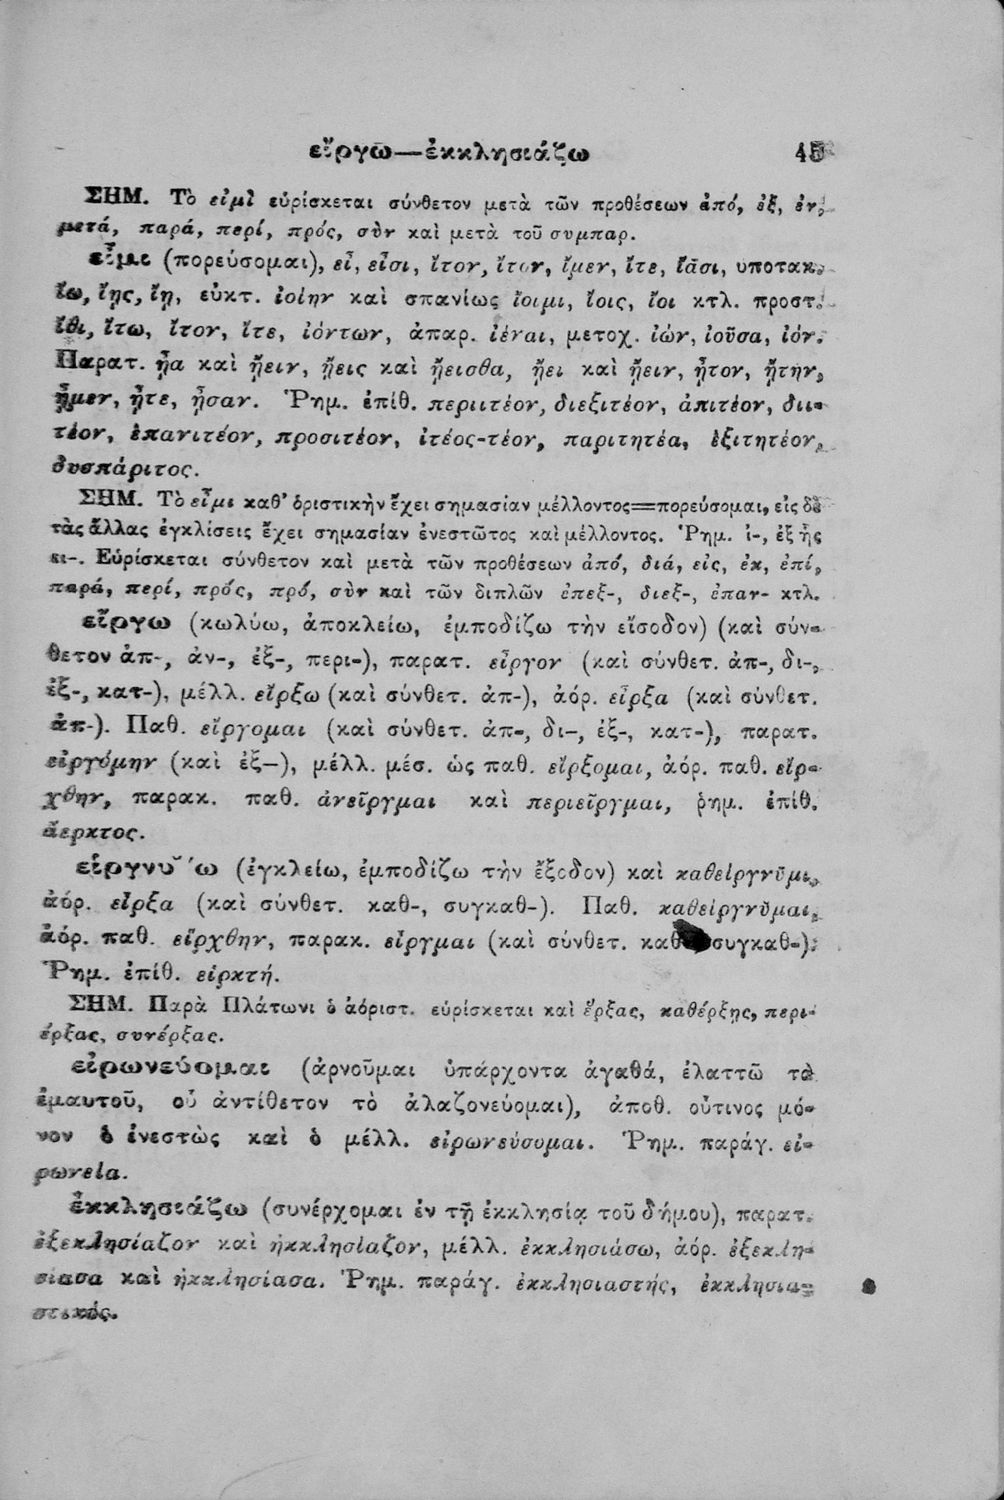 εἴργω—ἐκκλησιάζω 45
ΣΗΜ. Τὸ εἰμὶ εὑρίσκεται σύνθετον μετὰ τῶν προθέσεων ἀπό, ἐξ, ἐν,
μετά, παρά, περί, πρός, σὺν καὶ μετὰ τοῦ συμπαρ.
εἶμι (πορεύσομαι), εἶ, εἶσι, ἴτον, ἴτον, ἴμεν, ἴτε, ἴᾶσι, υποτακ.
ἴω, ἴῃς, ἴῃ, εὐκτ. ἰοίην καὶ σπανίως ἴοιμι, ἴοις, ἴοι κτλ. προστ.
ἴθι, ἴτω, ἴτον, ἴτε, ἰόντων, ἀπαρ. ἰέναι, μετοχ. ἰών, ἰοῦσα, ἰόν.
Παρατ. ᾖα καὶ ᾔειν, ᾔεις καὶ ᾔεισθα, ᾔει καὶ ᾔειν, ᾖτον, ᾔτην,
ᾖμεν, ᾖτε, ᾖσαν. Ῥημ. ἐπίθ. περιιτέον, διεξιτέον, ἀπιτέον, διι-
τέον, ἐπανιτέον, προσιτέον, ἰτέος-τέον, παριτητέα, ἐξιτητέον,
δυσπάριτος.
ΣΗΜ. Τὸ εἶμι καθ' ὁριστικὴν ἔχει σημασίαν μέλλοντος=πορεύσομαι, εἰς δὲ
τὰς ἄλλας ἐγκλίσεις ἔχει σημασίαν ἐνεστῶτος καὶ μέλλοντος. Ῥημ. ἰ-, ἐξ ἧς
ει-. Εὑρίσκεται σύνθετον καὶ μετὰ τῶν προθέσεων ἀπό, διά, εἰς, ἐκ, ἐπί,
παρά, περί, πρός, πρό, σὺν καὶ τῶν διπλῶν ἐπεξ-, διεξ-, ἐπαν- κτλ.
εἴργω (κωλύω, ἀποκλείω, ἐμποδίζω τὴν εἴσοδον) (καὶ σύν-
θετον ἀπ-, ἀν-, ἐξ-, περι-), παρατ. εἶργον (καὶ σύνθετ. ἀπ-, δι-,
ἐξ-, κατ-), μέλλ. εἴρξω (καὶ σύνθετ. ἀπ-), ἀόρ. εἶρξα (καὶ σύνθετ.
ἀπ-). Παθ. εἴργομαι (καὶ σύνθετ. ἀπ-, δι-, ἐξ-, κατ-), παρατ.
εἰργόμην (καὶ ἐξ—), μέλλ. μέσ. ὡς παθ. εἴρξομαι, ἀόρ. παθ. εἴρ-
χθην, παρακ. παθ. ἀνεῖργμαι καὶ περιεῖργμαι, ῥημ. ἐπίθ.
ἄερκτος.
εἱργνύ ω (ἐγκλείω, ἐμποδίζω τὴν ἔξοδον) καὶ καθείργνῡμι,
ἀόρ. εἷρξα (καὶ σύνθετ. καθ-, συγκαθ-). Παθ. καθείργνῠμαι,
ἀόρ. παθ. εἵρχθην, παρακ. εἷργμαι (καὶ σύνθετ. συγκαθ-).
Ῥημ. ἐπίθ. εἱρκτή.
ΣΗΜ. Παρὰ Πλάτωνι ὁ ἀόριστ. εὑρίσκεται καὶ ἔρξας, καθέρξῃς, περι-
έρξας, συνέρξας.
εἰρωνεύομαι (ἀρνοῦμαι ὑπάρχοντα ἀγαθά, ἐλαττῶ τὰ
ἐμαυτοῦ, οὗ ἀντίθετον τὸ ἀλαζονεύομαι), ἀποθ. οὗτινος μό-
νον ὁ ἐνεστὼς καὶ ὁ μέλλ. εἰρωνεύσομαι. Ῥημ. παράγ. εἰ-
ρωνεία.
ἐκκλησιάζω (συνέρχομαι ἐν τῇ ἐκκλησίᾳ τοῦ δήμου), παρατ.
ἐξεκλησίαζον καὶ ἠκκλησίαζον, μέλλ. ἐκκλησιάσω, ἀόρ. ἐξεκλη-
σίασα καὶ ἠκκλησίασα. Ῥημ. παράγ. ἐκκλησιαστής, ἐκκλησια-
στικός.